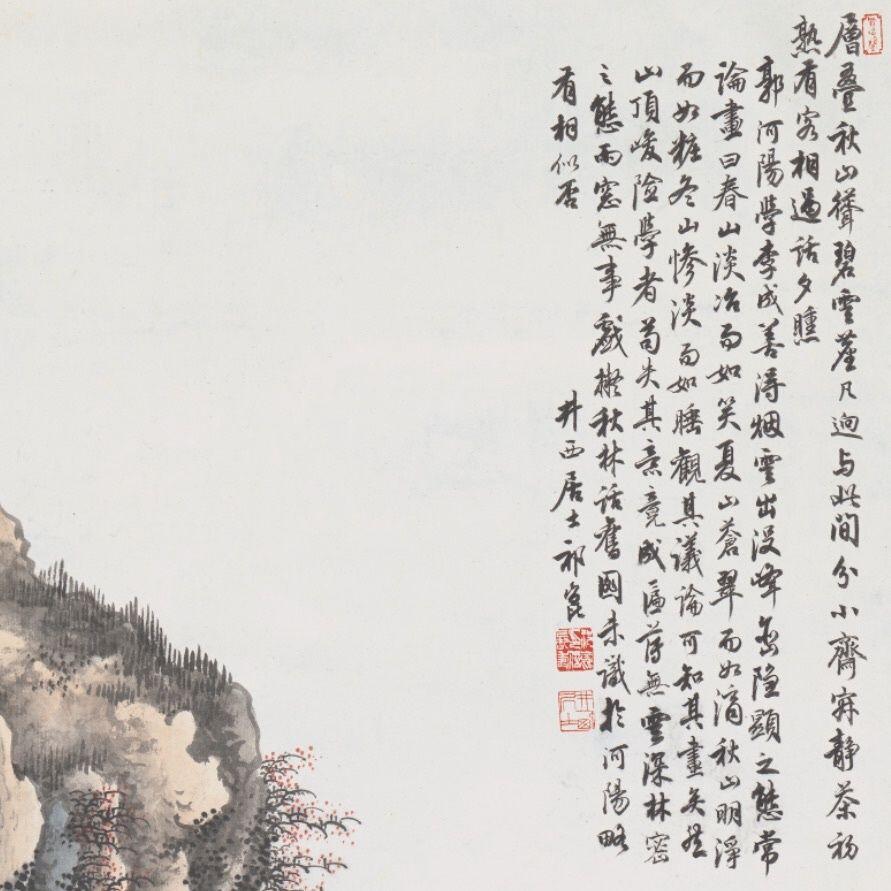 層疊秋山聳碧雲塵凡迥与此間分小齋寂静茶初
熟有客相過話夕曛
郭河陽學李成善得烟雲出没峰巒隱顯之態常
論畫曰春山淡冶而如笑夏山蒼翠而如滴秋山明淨
而如粧冬山惨淡而如睡觀其議論可知其畫矣然
山頂峻險學者苟失其意竟成匾薄無雲深林密
之態雨窓無事戲擬秋林話舊圖未識於河陽略
有相似否
井西居士祁崑